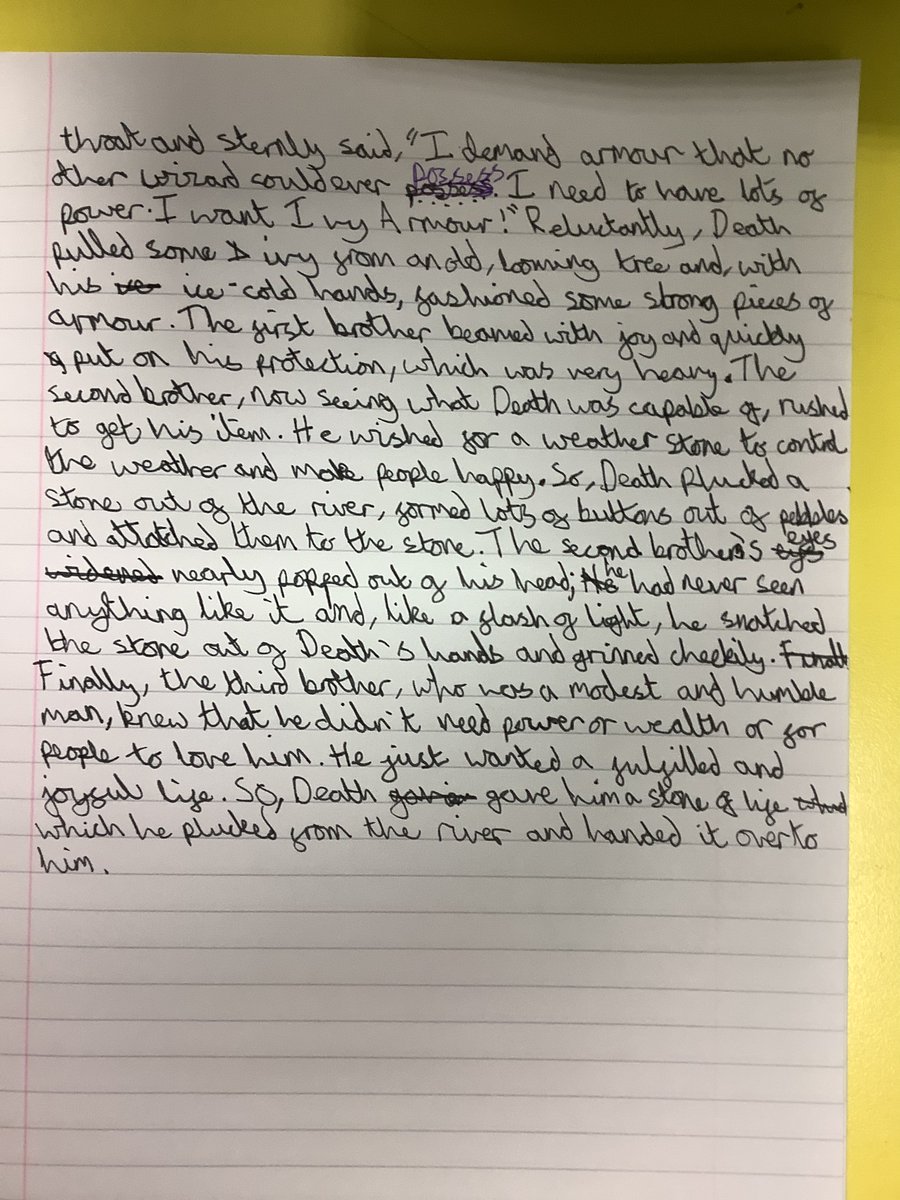 throat and sternly said, "I demand armour that no
other wizrad could ever possess. I need to have lots of
power. I want Ivy Armour!" Reluctantly, Death
pulled some ivy from an old, looming tree and, with
his ice-cold hands, fashioned some strong pieces of
armour. The first brother beamed with joy and quickly
put on his protection, which was very heavy. The
second brother, now seeing what Death was capable of, rushed
to get his item. He wished for a weather stone to control
the weather and make people happy. So, Death plucked a
stone out of the river, formed lots of buttons out of pebbles
and attatched them to the stone. The second brother's eyes
widened nearly popped out of his head; he had never seen
anything like it and, like a flash of light, he snatched
the stone out of Death's hands and grinned cheekily. Finall
Finally, the third brother, who was a modest and humble
man, knew that he didn't need power or wealth or for
people to love him. He just wanted a fulfilled and
joyful life. So, Death gave him a stone of life
which he plucked from the river and handed it over to
him.